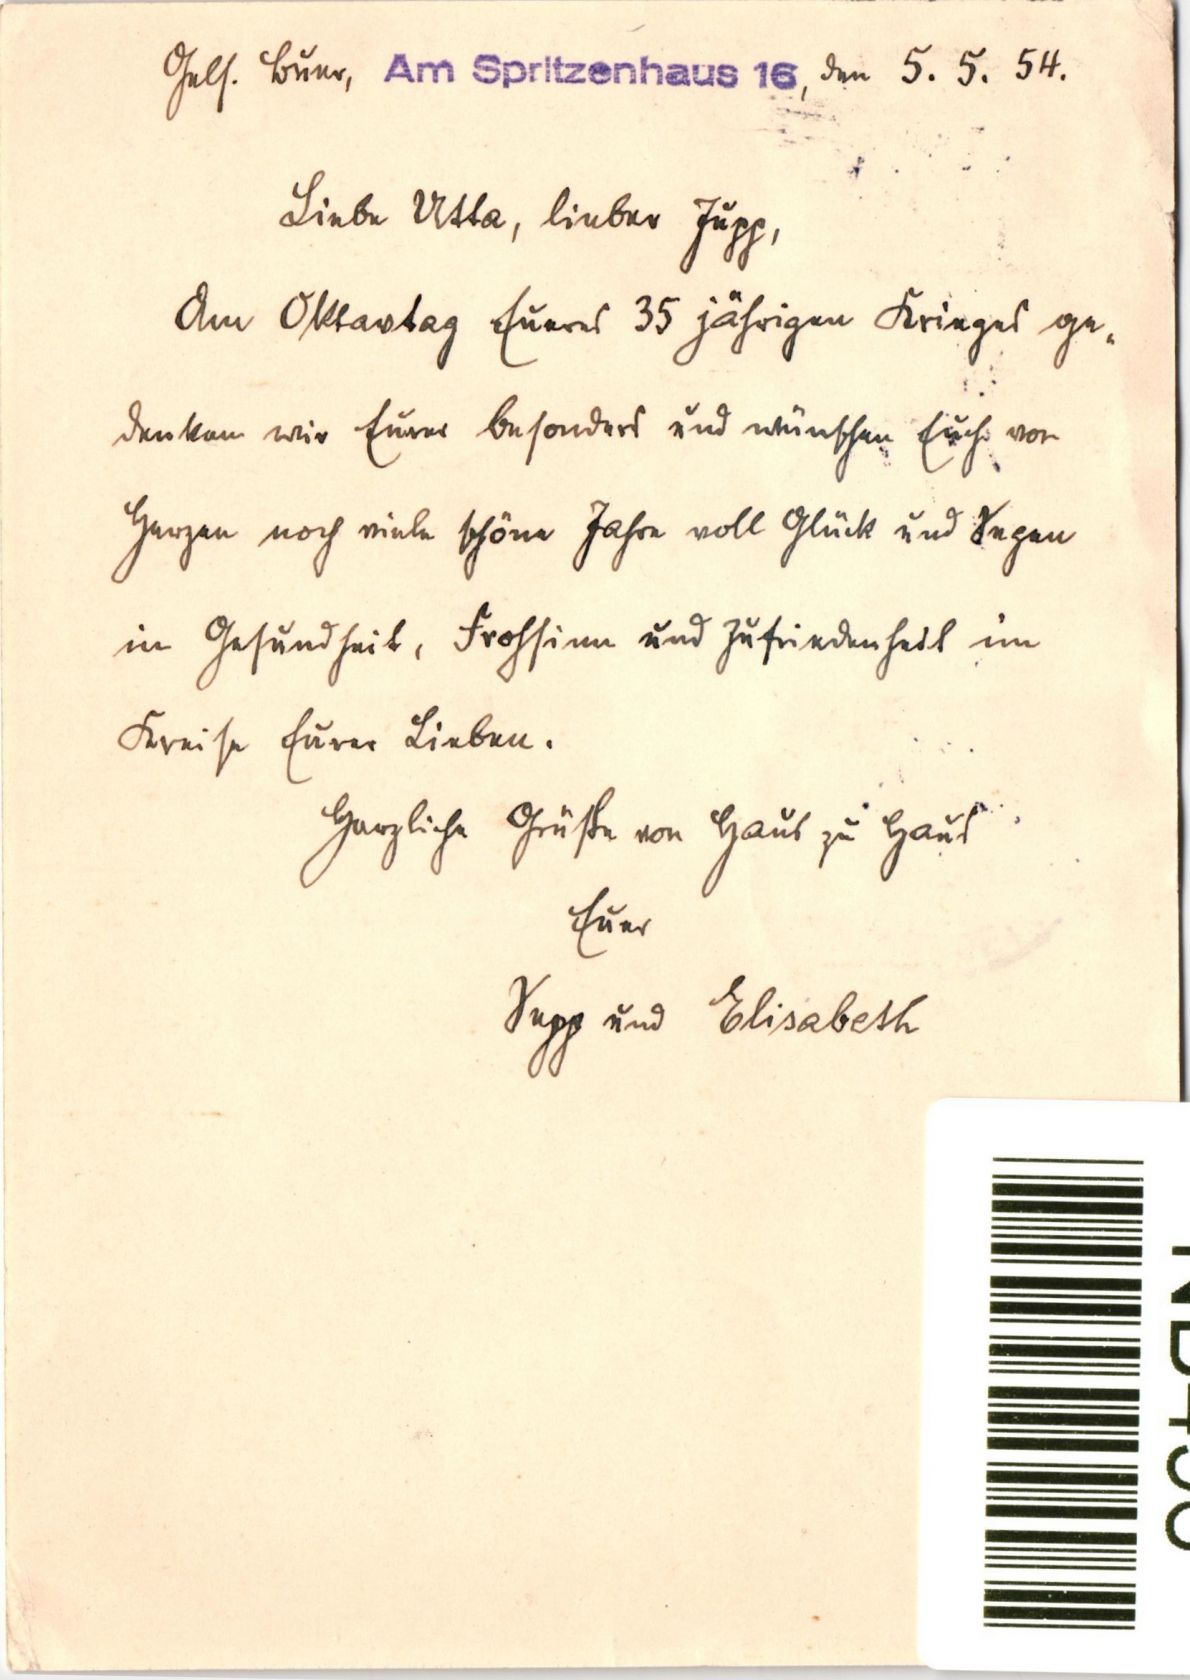 Gels. Buer, Am Spritzenhaus 16, den 5. 5. 54.
Liebe Utta, lieber Jupp,
Am Oktavtag Eueres 35 jährigen Krieges ge-
denken wir Eurer besonders und wünschen Euch von
Herzen noch viele schöne Jahre voll Glück und Segen
in Gesundheit, Frohsinn und Zufriedenheit im
Kreise Eurer Lieben.
Herzliche Grüße von Haus zu Haus
Euer
Sepp und Elisabeth